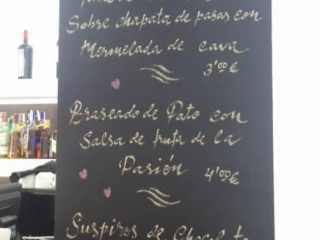 Sobre chapata de pasas con
Mermelada de cava
3'00€
Braseado de Pato con
Salsa de fruta de la
Pasión 4'00€
Suspiros de